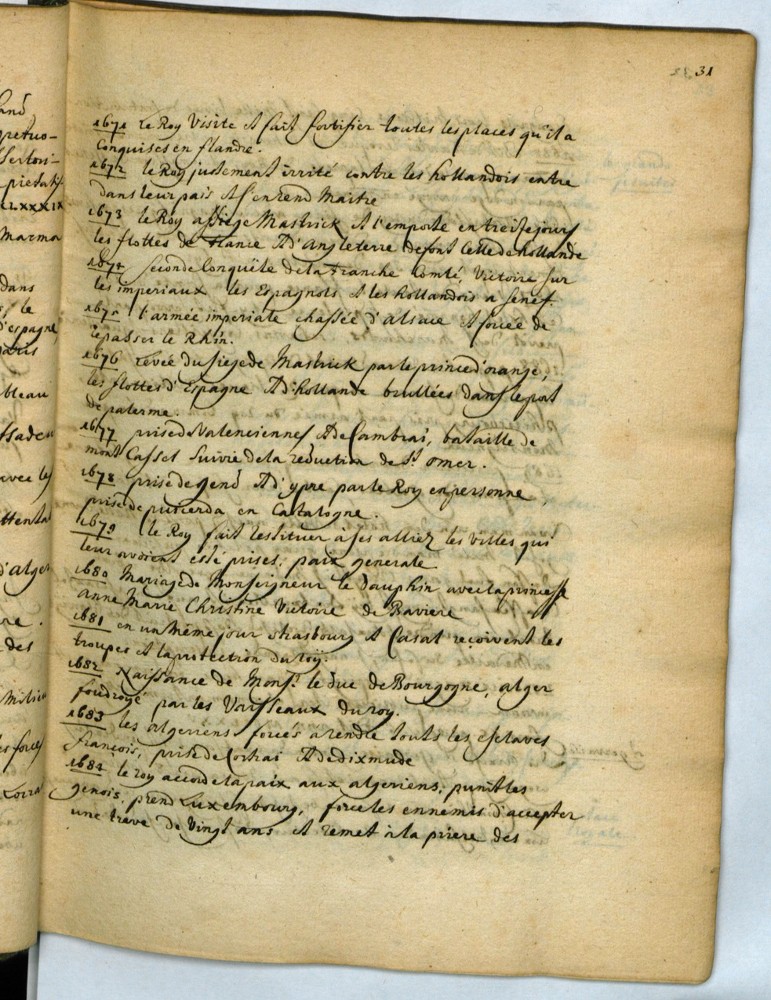 31
1671 Le Roy Visite et fait fortifier toutes les places qu'il a
Conquises en flandre.
1672 le Roy justement irrité contre les hollandois entre
dans leur païs et s'en rend Maitre
1673 le Roy assiege Mastrick et l'emporte en treise jours
les flottes de France et d'Angleterre defont celle de hollande
1674 seconde Conquête de la franche Comté, Victoire sur
les imperiaux les Espagnols et les hollandois a senef.
1675 l'armée imperiale chassée d'alsace et forcée de
repasser le Rhin.
1676 Levée du siege de Mastrick par le prince d'orange,
les flottes d'Espagne et d'hollande brullées dans le port
de palerme.
1677 prise de Valenciennes et de Cambrai, bataille de
mont Cassel suivie de la reduction de St omer.
1678 prise de gend et d'ypre par le Roy en personne,
prise de puicerda en Catalogne.
1679 le Roy fait restituer à ses alliez les villes qui
leur avoient esté prises; paix generale
1680 Mariage de Monseigneur le Dauphin avec la princesse
Anne Marie Christine Victoire de Baviere
1681 en un même jour strasbourg et Casal reçoivent les
troupes et la protection du roy.
1682 Naissance de Monsr. le duc de Bourgogne, alger
foudroyé par les Vaisseaux du roy.
1683 les algeriens forcés a rendre touts les esclaves
françois, prise de Cortrai et de dixmude
1684 le roy accorde la paix aux algeriens, punit les
genois, prend Luxembourg, force les ennemis d'accepter
une treve de Vingt ans et remet à la priere des